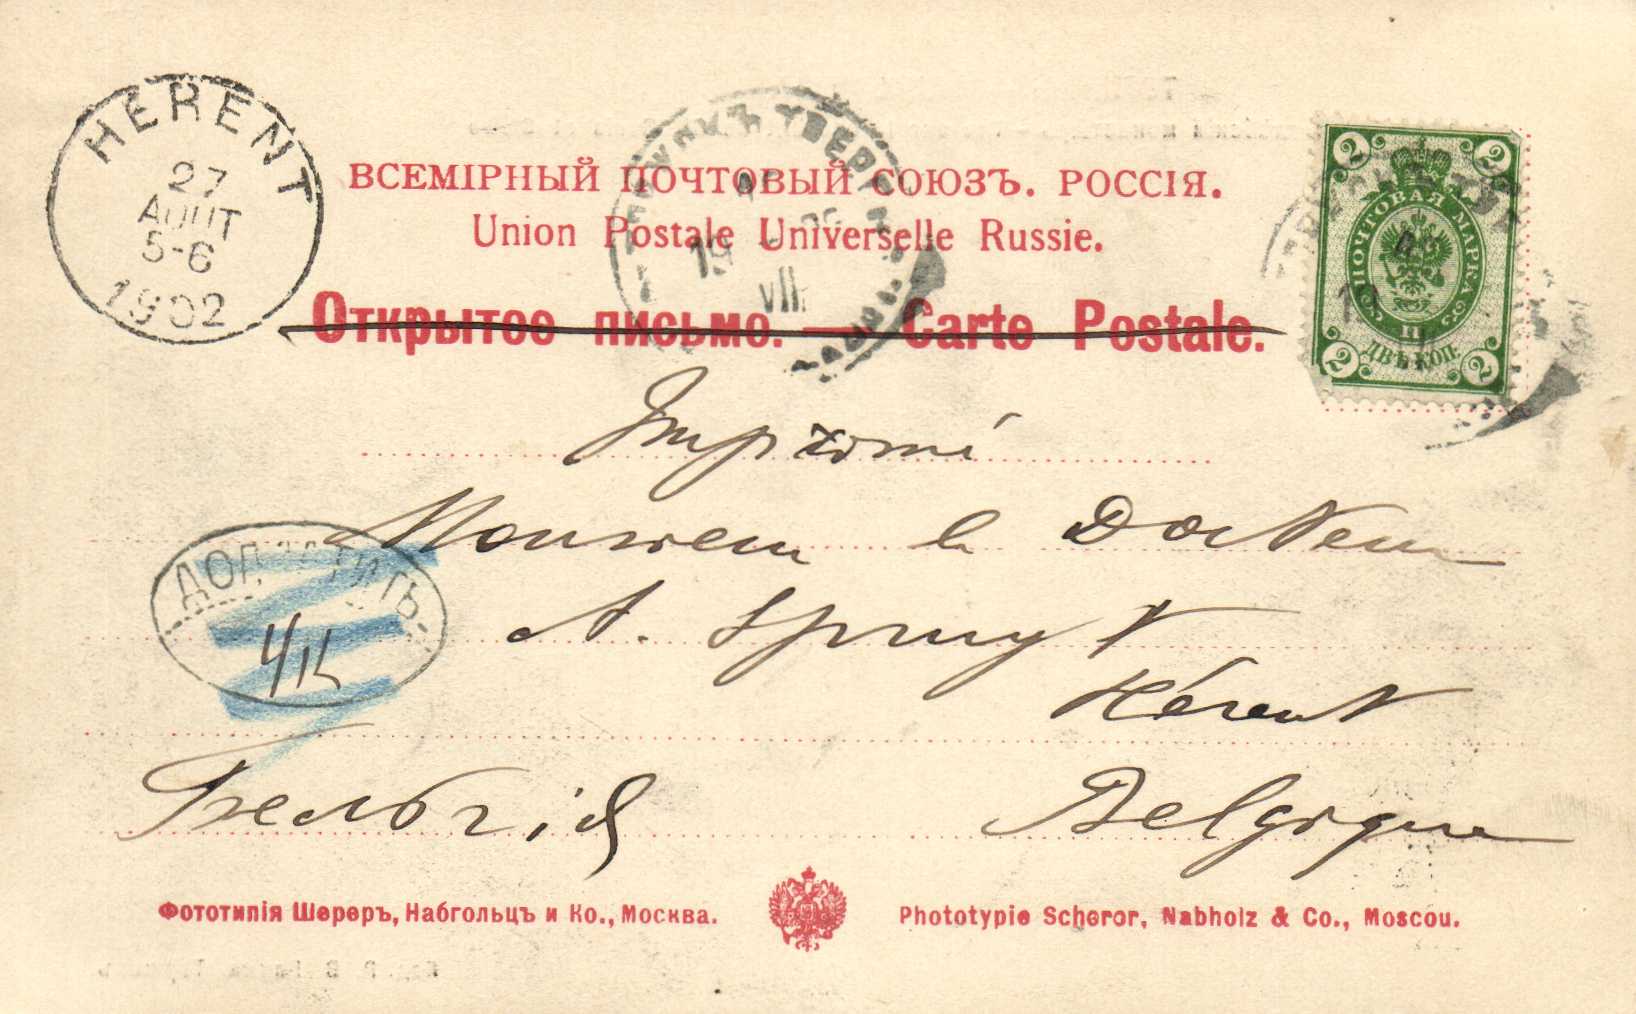 HERENT
27
AOUT
5-6
1902
ВСЕМІРНЫЙ ПОЧТОВЫЙ СОЮЗЪ. РОССІЯ.
Union Postale Universelle Russie.
Открытое письмо. — Carte Postale.
19
VII
2 2
ПОЧТОВАЯ МАРКА
II
ДВѢ КОП.
2 2
Imprimé
Monsieur le Docteur
A. Spruyt
Hérent
ДОПЛАТИТЬ
4К
Бельгія
Belgique
Фототипія Шереръ, Набгольцъ и Ко., Москва.
Phototypie Scherer, Nabholz & Co., Moscou.